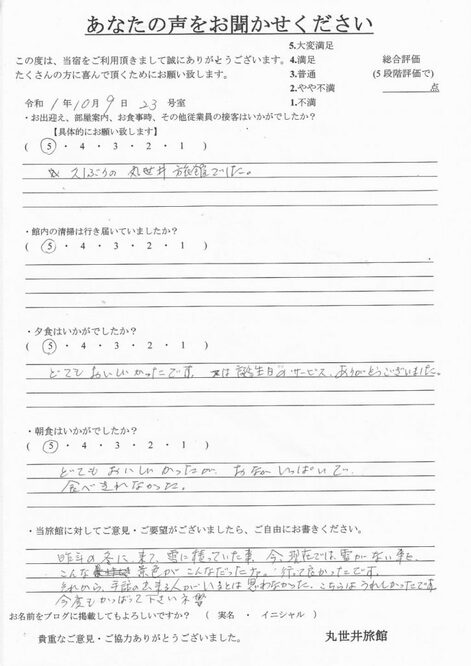 あなたの声をお聞かせください
この度は、当宿をご利用頂きまして誠にありがとうございます。
たくさんの方に喜んで頂くためにお願い致します。
5.大変満足
4.満足
3.普通
2.やや不満
1.不満
総合評価
(5段階評価で)
点
令和 1年10月9日 23号室
・お出迎え、部屋案内、お食事時、その他従業員の接客はいかがでしたか?
【具体的にお願い致します】
( 5 ・ 4 ・ 3 ・ 2 ・ 1 )
久しぶりの 丸世井 旅館でした。
・館内の清掃は行き届いていましたか?
( 5 ・ 4 ・ 3 ・ 2 ・ 1 )
・夕食はいかがでしたか?
( 5 ・ 4 ・ 3 ・ 2 ・ 1 )
とても おいしいかったです。 誕生日のサービス、ありがとうございました。
・朝食はいかがでしたか?
( 5 ・ 4 ・ 3 ・ 2 ・ 1 )
とても おいしいかったが、おなかいっぱいで
食べきれなかった。
・当旅館に対してご意見・ご要望がございましたら、ご自由にお書きください。
昨年の冬に 来て、雪に積っていた事、今現在では雪がない事と、
こんな 景色が こんなだったな。行って良かったです。
それから、手話の出来る人がいるとは思わなかった。こちらは うれしかったです
今度も がんばって下さいネ
お名前をブログに掲載してもよろしいですか? ( 実名 ・ イニシャル )
貴重なご意見・ご協力ありがとうございました。
丸世井旅館